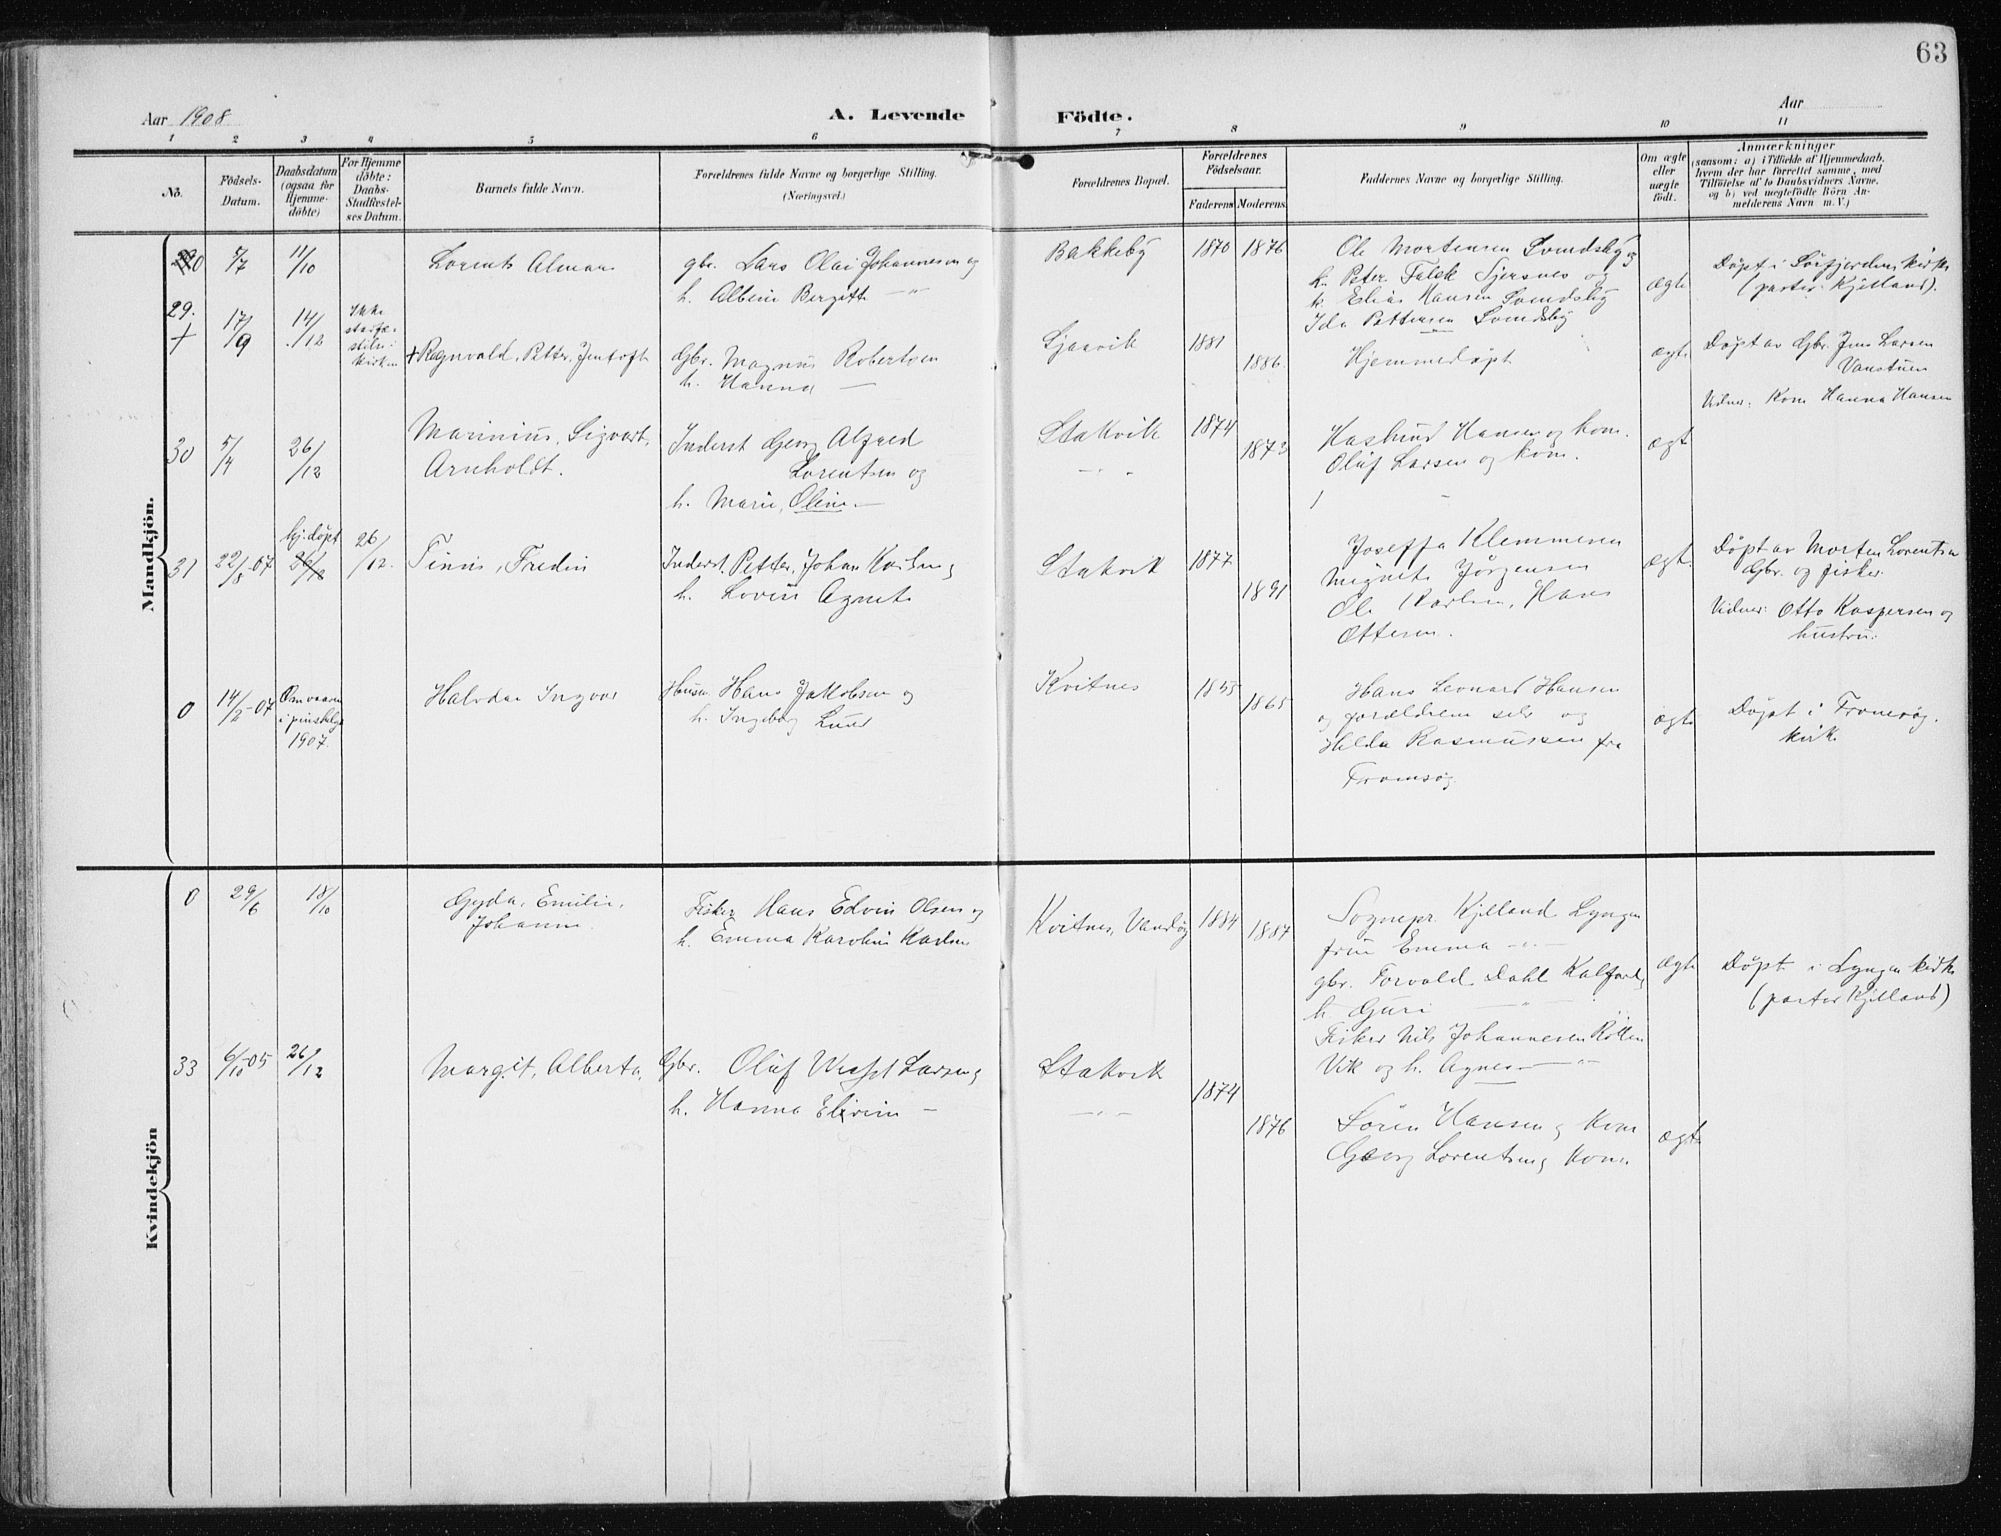 63
Aar 1908
A. Levende Födte.
Aar
1 2 3 4 5 6 7 8 9 10 11
Nò.
Födsels-
Datum.
Daabsdatum
(ogsaa for
Hjemme-
döbte)
For Hjemme
döbte:
Daabs-
Stadfæstel-
ses Datum.
Barnets fulde Navn.
Forældrenes fulde Navne og borgerlige Stilling.
(Næringsvei.)
Forældrenes Bopæl.
Forældrenes
Födselsaar.
Faderens Moderens
Faddernes Navne og borgerlige Stilling.
Om ægte
eller
uægte
födt.
Anmærkninger
(saasom: a) i Tilfælde af Hjemmedaab,
hvem der har forrettet samme, med
Tilföielse af to Daabsvidners Navne,
og b) ved uegtefödte Börn An-
melderens Navn m. V.)
Mandkjön.
0
5/7
11/10
Lorents Almar
gbr. Lars Olai Johannesen og
h. Albine Bergitte — " —
Bakkeby
1870
1876
Ole Mortensen Svendsby og
h. Peter Falck Sjersnes og
h. Elias Hansen Svendsby
Ida Pettersen Svendsby
ægte
Døpt i Sörfjordens kirke
(pastor Kjelland).
29.
+
17/9
14/12
Ikke
stadfæ-
stet i
kirken
+ Ragnvald, Petter, Jentoft
Gbr. Magnus Robertsen
h. Hanna —
Sjaavik
1881
1886
Hjemmedøpt
ægte
Døpt av Gbr. Jens Larsen
Vanstuen
Vidner: Kone Hanna Hansen
30
5/4
26/12
Marinius, Sigvart,
Arnholdt.
Inderst Georg Alfred
Lorentsen og
h. Marie, Oline —
Stakvik
— " —
1874
1873
Hansen og kone.
Oluf Larsen og kone.
ægte
31
22/8-07
hj.døpt
26/12
26/12.
Fredin
Inderst. Petter, Johan Karlsen og
h. Lovise Agnete
Stakvik
1877
1891
Joseffa Klemmensen
Jørgensen
Ole Karlsen, Hans
Ottesen.
ægte
Døpt av Morten Lorentsen
Gbr. og fisker.
Vidner: Otto Kaspersen og
hustru.
0
14/2-07
i pinsehelg
1907.
Halvdan Ingvar
Husm. Hans Jakobsen og
h. Ingeborg Lund
Kvitnes
1855
1865
Hans Leonard Hansen
og forældrene selv og
Hilda Rasmussen fra
Tromsø
ægte
Døpt i Tromsø
kirke
Kvindekjön
0
29/6
18/10
Gyda, Emilie,
Johanne.
Fisker Hans Edvin Olsen og
h. Emma Karoline Karlsen
Kvitnes, Vandøy
1884
1887
Sognepr. Kjelland Lyngen
frue Emma — " —
gbr. Torvald Dahl Kalfjord
h. Guri — " —
Fisker Nils Johannesen
Vik og h. Agnes — " —
ægte
Døpt i Lyngen kirke
(pastor Kjelland)
33
6/10-05
26/12
Margit, Alberta,
Gbr. Oluf Larsen og
h. Hanna
Stakvik
— " —
1874
1876
Sören Hansen og kone
Georg Lorentsen og kone
ægte